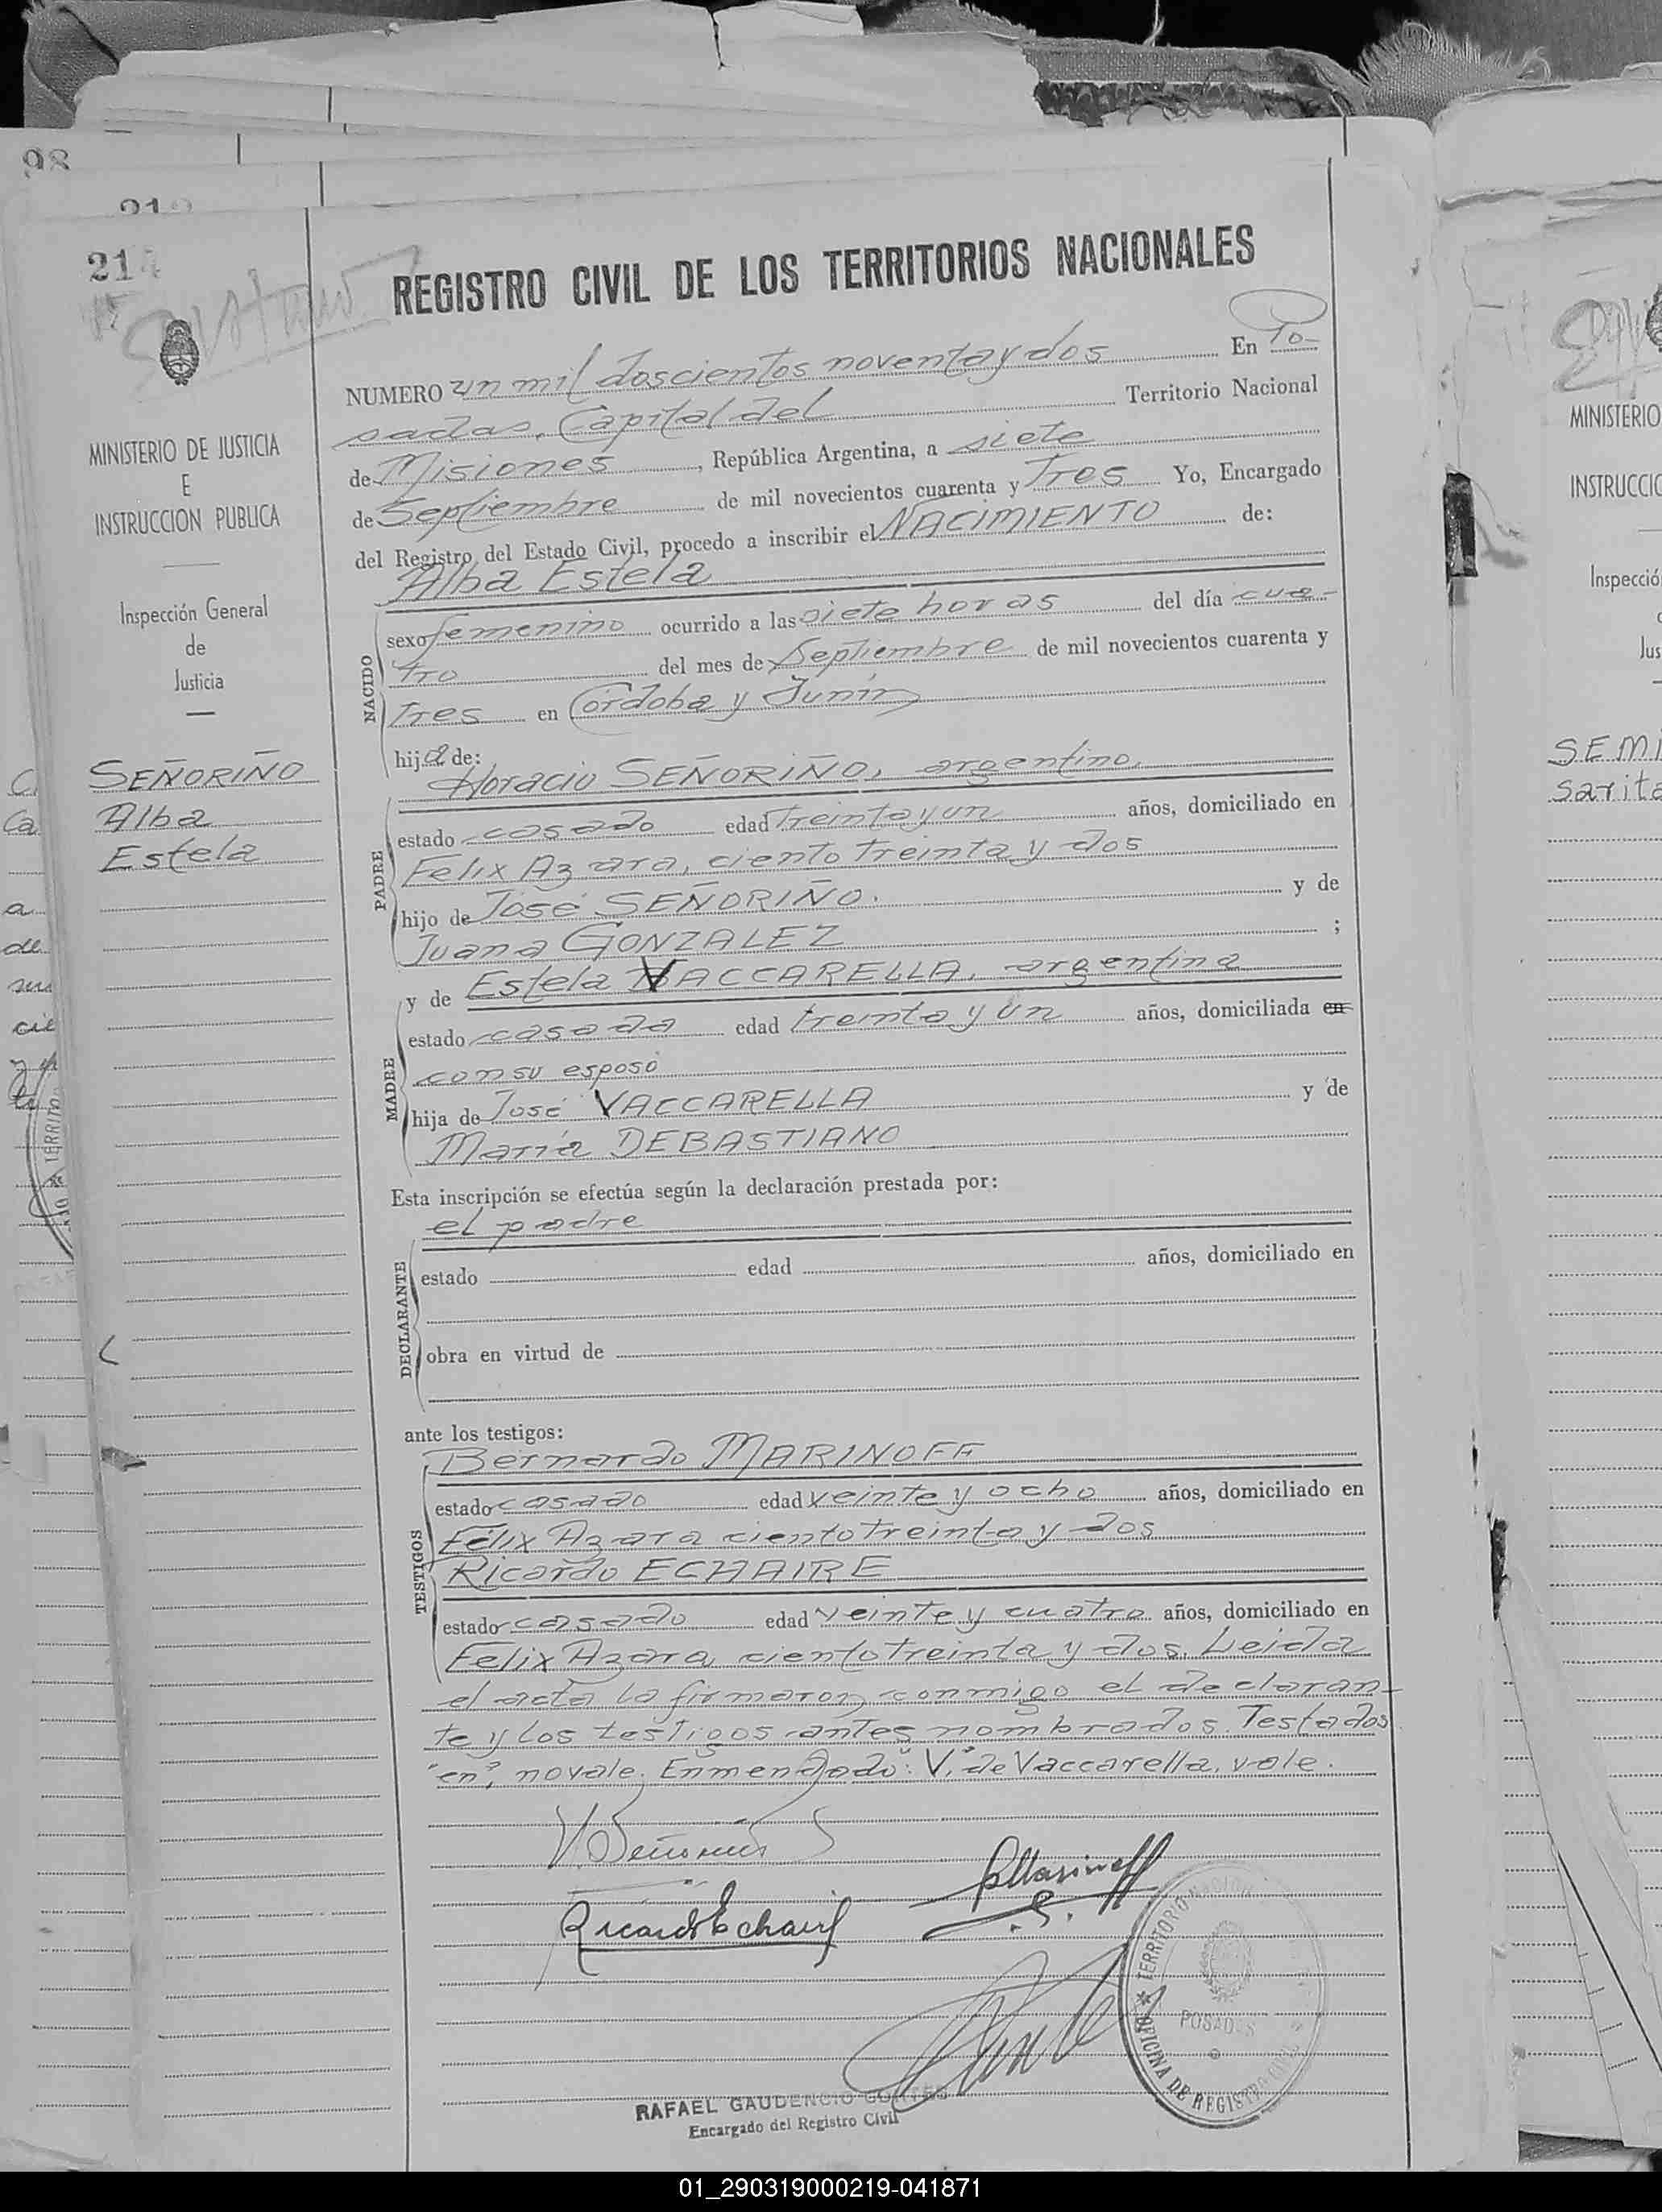 98
212
214
REGISTRO CIVIL DE LOS TERRITORIOS NACIONALES
NUMERO un mil doscientos noventa y dos En Po-
sadas, Capital del Territorio Nacional
de Misiones, República Argentina, a siete
de Septiembre de mil novecientos cuarenta y Tres Yo, Encargado
del Registro del Estado Civil, procedo a inscribir el NACIMIENTO de:
Alba Estela
NACIDO
sexo femenino ocurrido a las siete horas del día cua-
tro del mes de Septiembre de mil novecientos cuarenta y
Tres en Córdoba y Junín
hija de:
PADRE
Horacio SEÑORIÑO, argentino,
estado casado edad treinta y un años, domiciliado en
Felix Azara, ciento treinta y dos
hijo de José SEÑORIÑO. y de
Juana GONZALEZ ;
MADRE
y de Estela VACCARELLA, argentina
estado casada edad treinta y un años, domiciliada en
con su esposo
hija de José VACCARELLA y de
María DEBASTIANO
Esta inscripción se efectúa según la declaración prestada por:
el padre
DECLARANTE
estado edad años, domiciliado en
obra en virtud de
ante los testigos:
TESTIGOS
Bernardo MARINOFF
estado casado edad veinte y ocho años, domiciliado en
Félix Azara ciento treinta y dos
Ricardo ECHAIRE
estado casado edad veinte y cuatro años, domiciliado en
Felix Azara, ciento treinta y dos. Leida
el acta la firmaron conmigo el declaran-
te y los testigos antes nombrados. Testados
"en", no vale. Enmendado: "V" de Vaccarella, vale.
H Señoriño
BMarinoff
Ricardo Echaire
TERRITORIO NACIONAL
POSADAS
OFICINA DE REGISTRO CIVIL
RAFAEL GAUDENCIO CORTES
Encargado del Registro Civil
MINISTERIO DE JUSTICIA
E
INSTRUCCION PUBLICA
Inspección General
de
Justicia
SEÑORIÑO
Alba
Estela
MINISTERIO
INSTRUCCIO
Inspecció
Jus
SEMI
Sarita
01_290319000219-041871